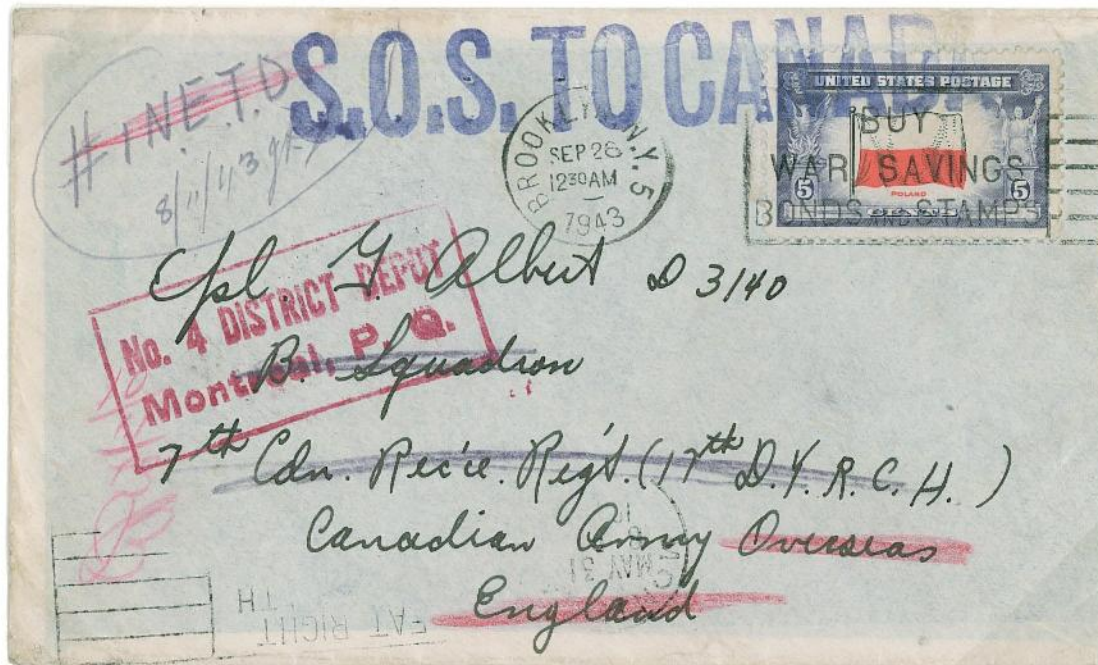 S.O.S. TO CANADA
# 1 N.E.T.D
8/11/43
BROOKLYN, N.Y. 5
SEP 26
12 30 AM
1943
UNITED STATES POSTAGE
BUY
WAR SAVINGS
BONDS AND STAMPS
5 POLAND 5
Cpl. Y. Albert D 3140
No. 4 DISTRICT DEPOT
Montreal, P. Q.
B. Squadron
7th Cdn. Rec'ce. Reg't. (17th D.Y.R.C.H.)
Canadian Army Overseas
England
MAY 31
EAT RIGHT